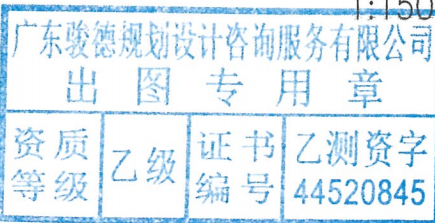 1:150
广东骏德规划设计咨询服务有限公司
出图专用章
资质等级 乙级 证书编号 乙测资字44520845